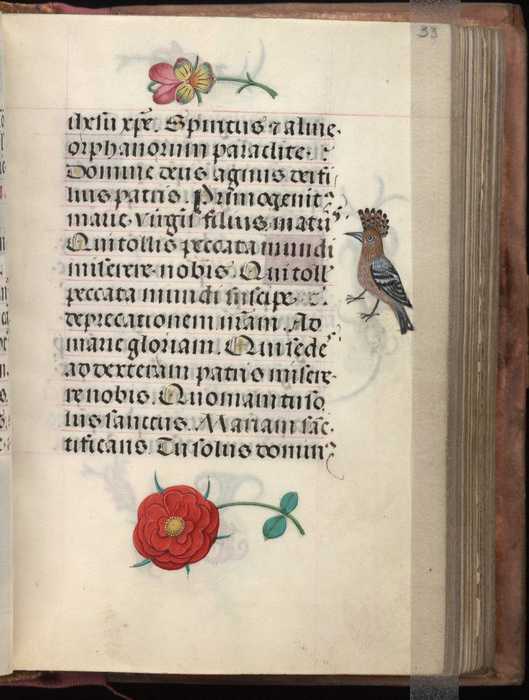 33
ihesu xpe. Spiritus & alme
orphanorum paraclite.
Domine deus agnus dei fi
lius patris. Primogenit
marie virgīs filius matrī
Qui tollis peccata mundi
miserere nobis. Qui toll
peccata mundi suscipe
deprecationem nr̄am. Ad
marie gloriam. Qui sede
ad dexteram patris misere
re nobis. Quoniam tu so
lus sanctus. Mariam sāc
tificans. Tu solus domin